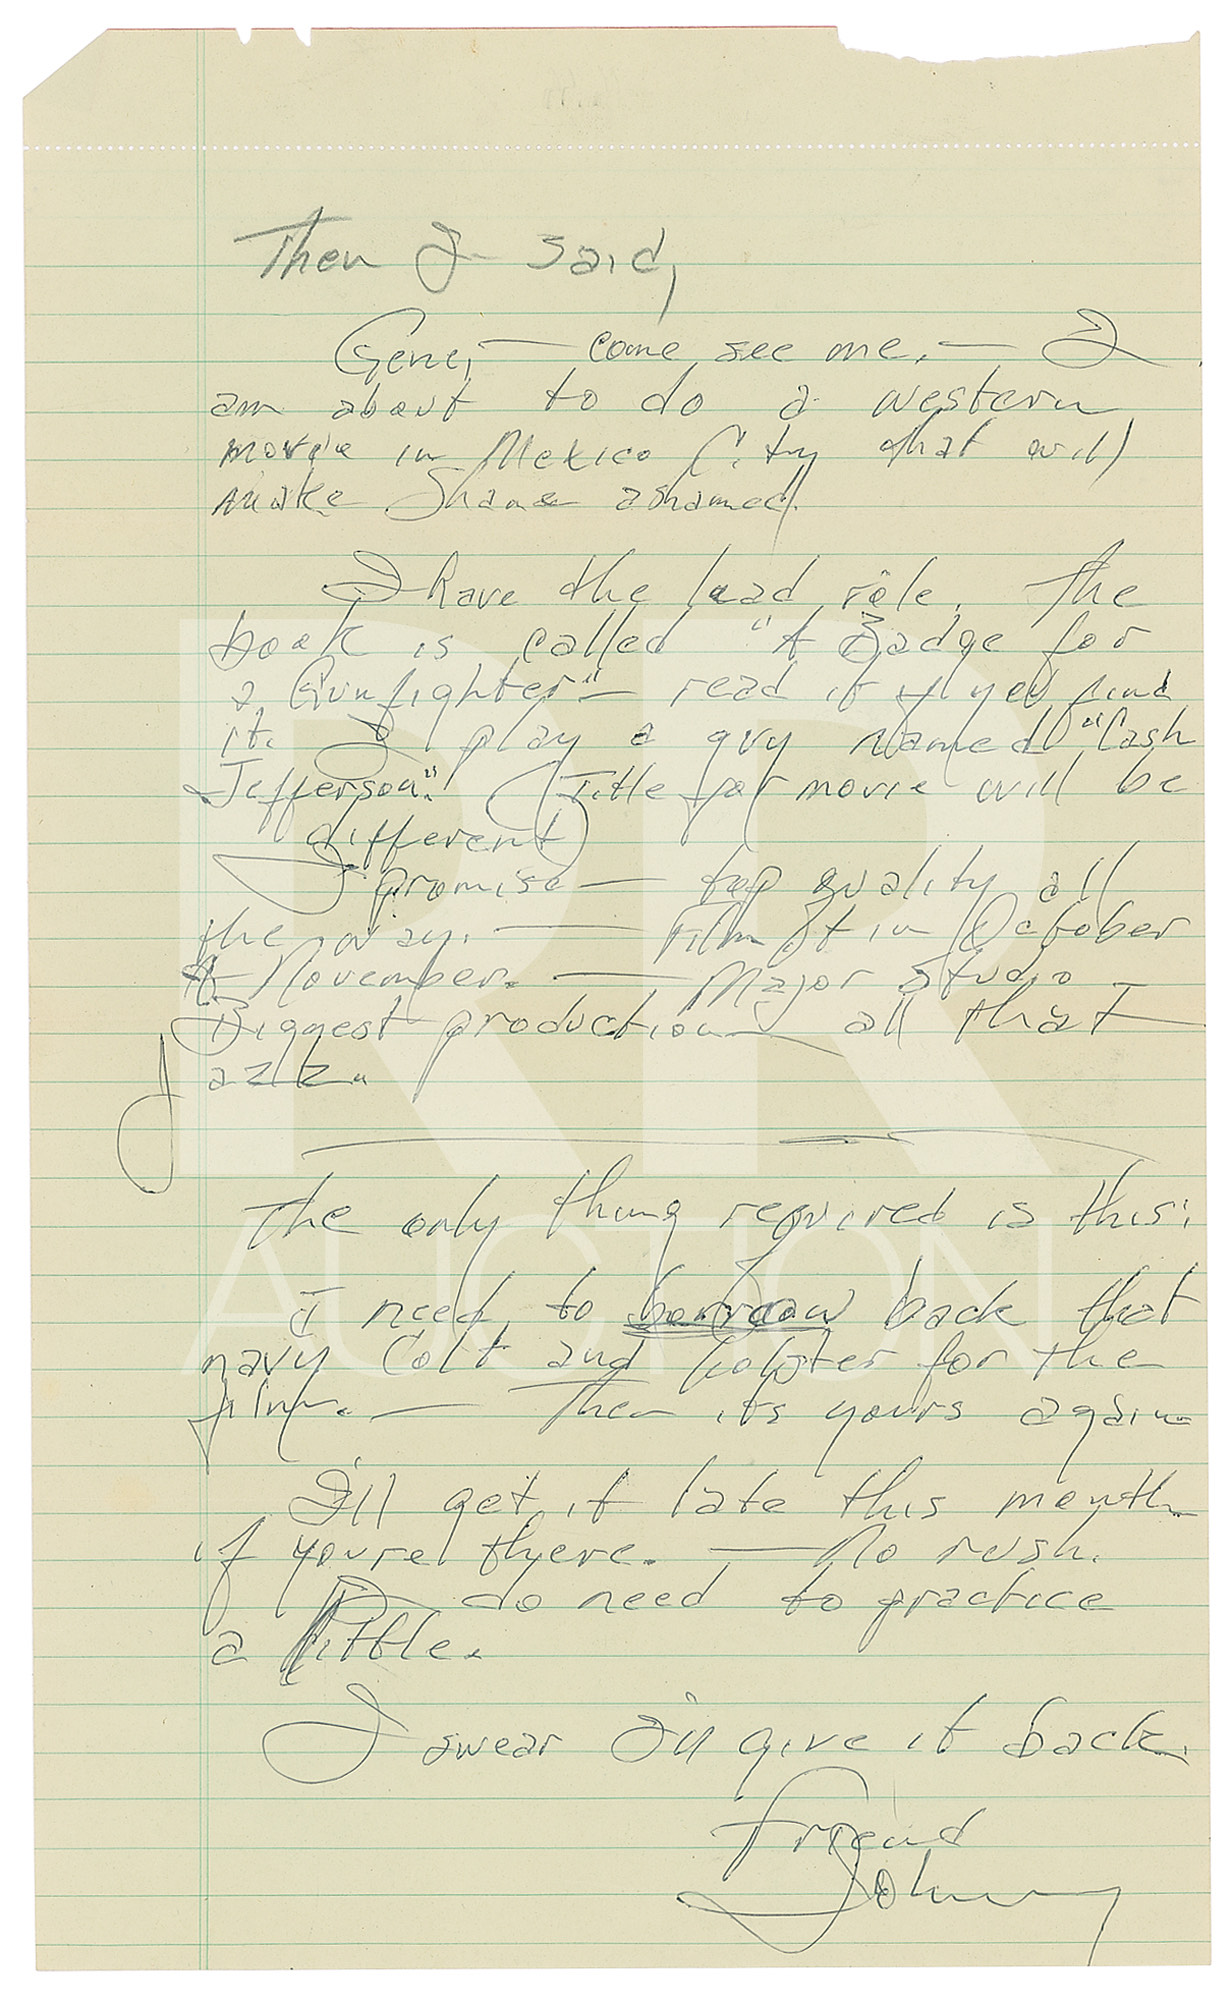 Then I said,
Gene, — come see me. — I
am about to do a western
movie in Mexico City that will
make Shane ashamed.
I have the lead role. The
book is called "A Badge for
a Gunfighter" — read it if you find
it. I play a guy named "Cash
Jefferson." (Title for movie will be
different)
I promise — top quality all
the way. — Film it in October
& November. — Major Studio —
Biggest production all that
Jazz.
The only thing required is this:
I need to borrow back that
navy Colt and holster for the
film. — Then its yours again
I'll get it late this month
if youre there. — No rush.
I do need to practice
a little.
I swear I'll give it back.
Friend
Johnny
RR
AUCTION